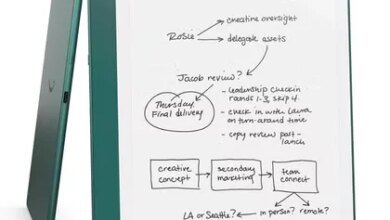 creative oversight
Rosie
delegate assets
Jacob review?
- leadership checkin
rounds 1-3, skip 4.
Thursday,
Final delivery
- check in with Laura
on turn-around time
- copy review post-
launch
creative
concept
secondary
marketing
team
connect
LA or Seattle?
in person?
remote?